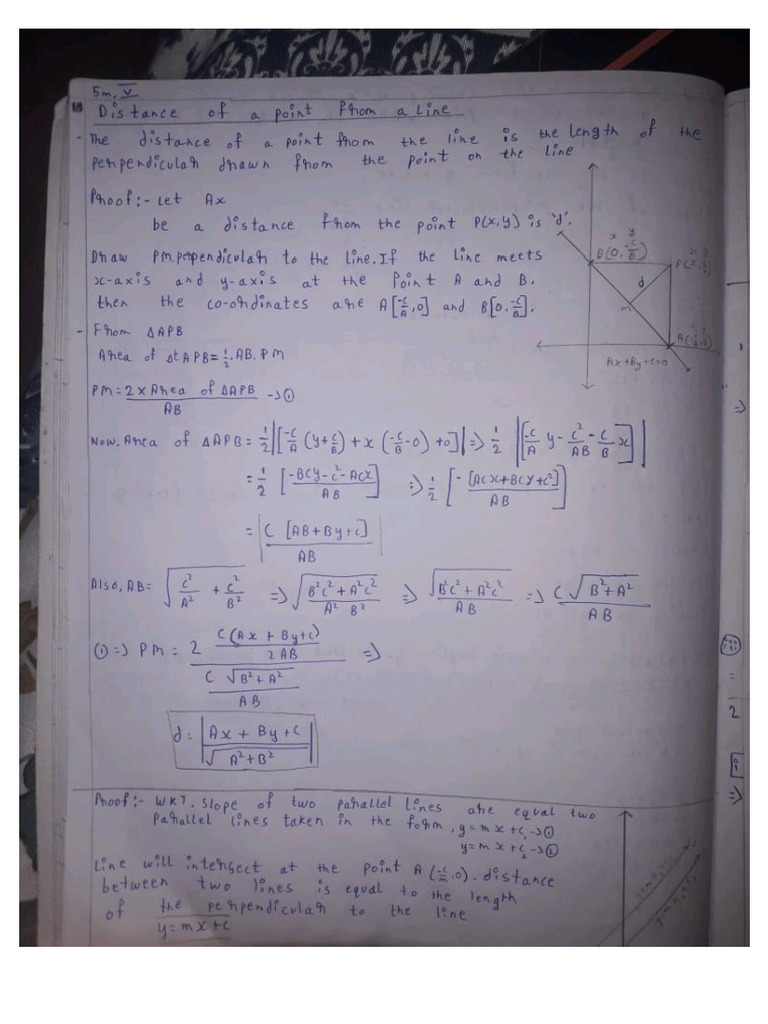 5m, V
Distance of a point from a line
- The distance of a point from the line is the length of the
perpendicular drawn from the point on the line
Proof:- Let Ax
be a distance from the point P(x,y) is 'd'.
Draw PM perpendicular to the line. If the line meets
x-axis and y-axis at the point A and B.
then the co-ordinates are A[-c/A,0] and B[0.-c/B].
x y
B(0,-c/B)
d
m
Ax+By+c=0
- From ΔAPB
Area of Δt APB=1/2.AB.PM
PM= 2 x Area of ΔAPB / AB ->①
Now, Area of ΔAPB= 1/2 |[-c/A (y+c/B) + x (-c/B -0) +0]| => 1/2 |[-c/A y - c²/AB - c/B x]|
= 1/2 [-BCY-c²-ACX / AB] => 1/2 [-[ACX+BCY+c²] / AB]
= |C [AB+By+c] / AB|
Also, AB= √(c²/A² + c²/B²) => √(B²c²+A²c² / A² B²) => √(B²c²+A²c²) / AB => C √(B²+A²) / AB
① => PM = 2 C(Ax + By+c) / 2AB / C √(B²+A²) / AB =>
d= |Ax + By + C / √(A²+B²)|
Proof:- WKT. slope of two parallel lines are equal two
parallel lines taken in the form, y=mx+c₁ ->①
y=mx+c₂ ->②
Line will intersect at the point A (-c/m,0). distance
between two lines is equal to the length
of the perpendicular to the line
y=mx+c